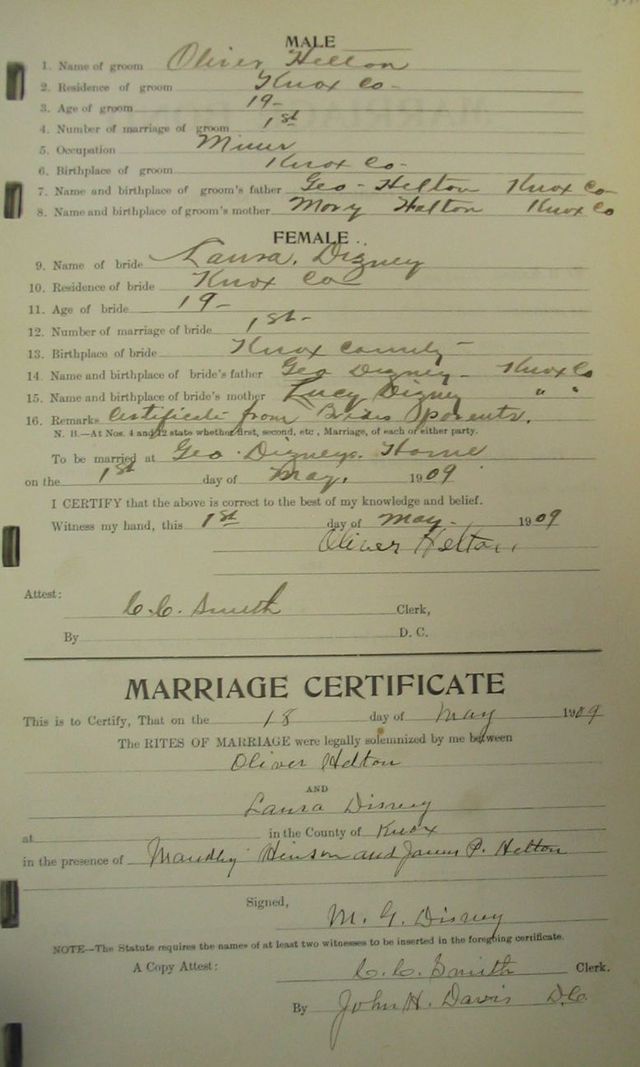 MALE
1. Name of groom Oliver Helton
2. Residence of groom Knox Co-
3. Age of groom 19-
4. Number of marriage of groom 1st
5. Occupation Miner
6. Birthplace of groom Knox Co-
7. Name and birthplace of groom's father Geo- Helton Knox Co-
8. Name and birthplace of groom's mother Mary Helton Knox Co
FEMALE
9. Name of bride Laura. Dizney
10. Residence of bride Knox Co
11. Age of bride 19-
12. Number of marriage of bride 1st-
13. Birthplace of bride Knox County-
14. Name and birthplace of bride's father Geo Dizney- Knox Co
15. Name and birthplace of bride's mother Lucy Dizney " "
16. Remarks Certificate from Brides parents.
N. B.—At Nos. 4 and 12 state whether first, second, etc., Marriage, of each or either party.
To be married at Geo. Dizneys. Home
on the 1st day of May. 1909
I CERTIFY that the above is correct to the best of my knowledge and belief.
Witness my hand, this 1st day of May- 1909
Oliver Helton
Attest:
C.C. Smith Clerk,
By D. C.
MARRIAGE CERTIFICATE
This is to Certify, That on the 18 day of May 1909
The RITES OF MARRIAGE were legally solemnized by me between
Oliver Helton
AND
Laura Disney
at in the County of Knox
in the presence of Hinson and P. Helton
Signed,
M. G. Disney
NOTE—The Statute requires the names of at least two witnesses to be inserted in the foregoing certificate.
A Copy Attest: C.C. Smith Clerk.
By John H. Davis D.C.